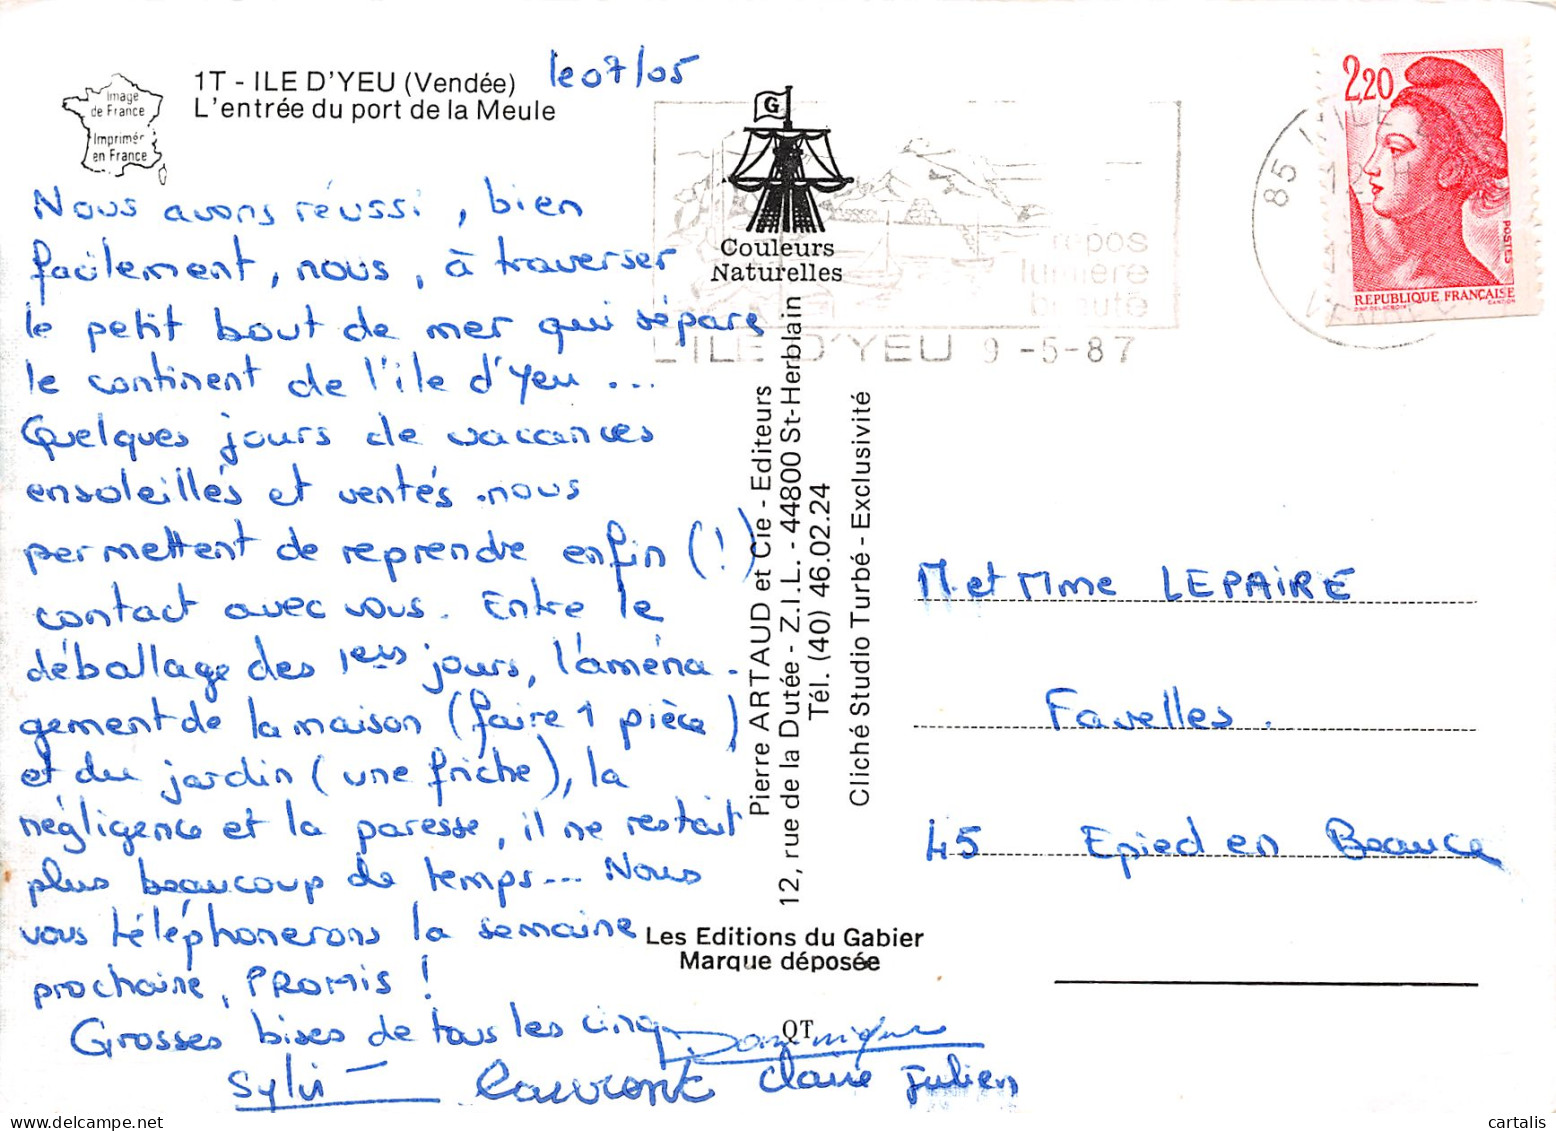 1T - ILE D'YEU (Vendée)
L'entrée du port de la Meule
le 07/05
Image
de France
Imprimer
en France
Nous avons réussi, bien
facilement, nous, à traverser
le petit bout de mer qui sépare
le continent de l'île d'Yeu ...
Quelques jours de vacances
ensoleillés et ventés nous
permettent de reprendre enfin (!)
contact avec vous. Entre le
déballage des 1ers jours, l'aména-
gement de la maison (faire 1 pièce)
et du jardin (une friche), la
négligence et la paresse, il ne restait
plus beaucoup de temps... Nous
vous téléphonerons la semaine
prochaine, PROMIS !
Grosses bises de tous les cinq
Dominique
Sylvi
Laurent Claire Julien
G
Couleurs
Naturelles
Pierre ARTAUD et Cie - Editeurs
12, rue de la Dutée - Z.I.L. - 44800 St-Herblain
Tél. (40) 46.02.24
Cliché Studio Turbé - Exclusivité
Les Editions du Gabier
Marque déposée
QT
repos
lumière
beauté
L'ILE D'YEU 9-5-87
85 L'ILE D
VENDEE
2,20
POSTES
REPUBLIQUE FRANÇAISE
M et Mme LEPAIRE
Favelles.
45 Epied en Beauce
cartalis
www.delcampe.net